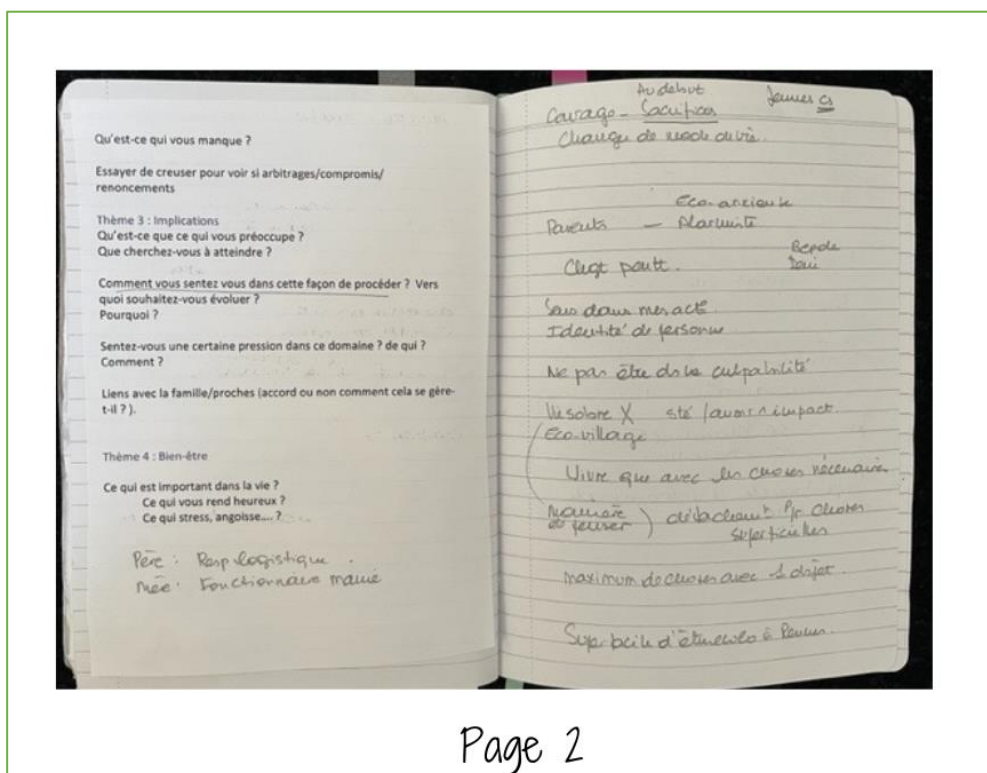 Qu'est-ce qui vous manque ?
Essayer de creuser pour voir si arbitrages/compromis/
renoncements
Thème 3 : Implications
Qu'est-ce que ce qui vous préoccupe ?
Que cherchez-vous à atteindre ?
Comment vous sentez vous dans cette façon de procéder ? Vers
quoi souhaitez-vous évoluer ?
Pourquoi ?
Sentez-vous une certaine pression dans ce domaine ? de qui ?
Comment ?
Liens avec la famille/proches (accord ou non comment cela se gère-
t-il ? ).
Thème 4 : Bien-être
Ce qui est important dans la vie ?
Ce qui vous rend heureux ?
Ce qui stress, angoisse.... ?
Père : Resp logistique.
Mère : Fonctionnaire mairie
Au début
Jeunes
Courage - Sacrifices
Change de mode de vie.
Eco-anxieuse
Parents -
Sens dans mes acte
Identité de personne
Ne pas être ds la culpabilité
X sté / avoir impact.
Eco-village
Vivre que avec les choses nécessaires
Manière
de penser ) détachement choses
superficielles
maximum de choses avec 1 objet.
Super facile d'être écolo à
Page 2